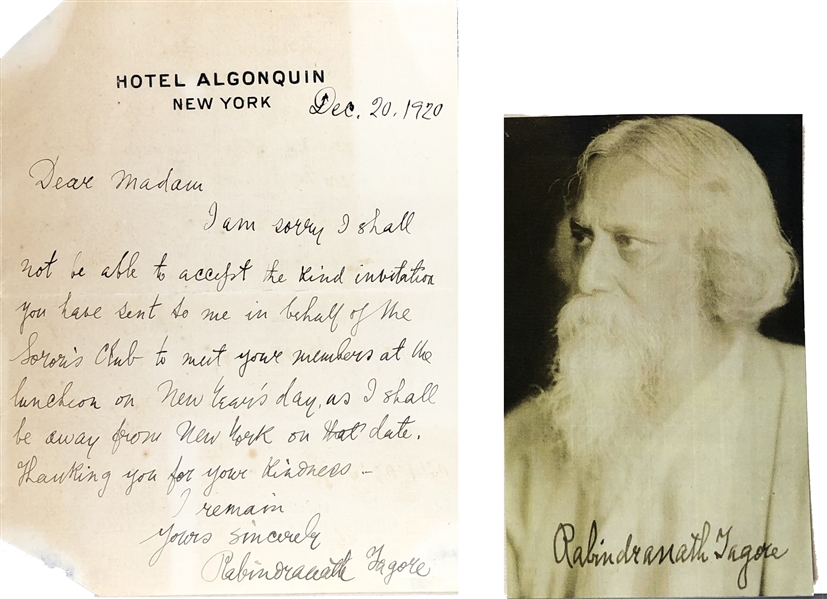 HOTEL ALGONQUIN
NEW YORK
Dec. 20. 1920
Dear Madam
I am sorry I shall
not be able to accept the kind invitation
you have sent to me in behalf of the
Sorosis Club to meet your members at the
luncheon on New Year's day, as I shall
be away from New York on that date.
Thanking you for your kindness –
I remain
yours sincerely
Rabindranath Tagore
Rabindranath Tagore